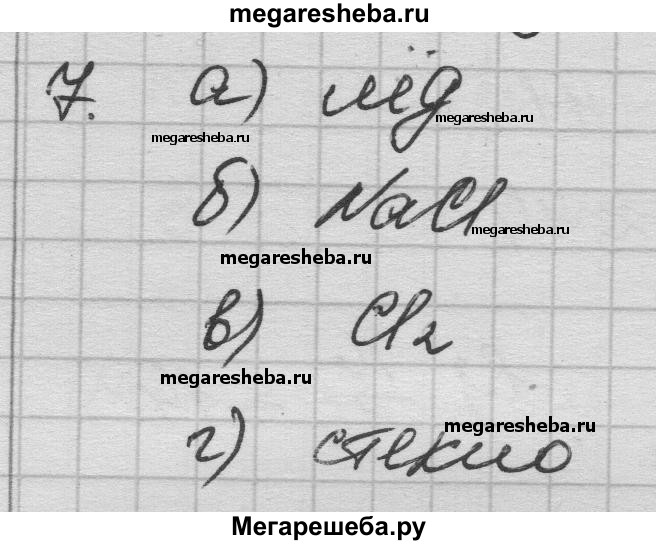 megaresheba.ru
7. а) лёд
megaresheba.ru
megaresheba.ru
б) NaCl
megaresheba.ru
megaresheba.ru
в) Cl₂
megaresheba.ru
megaresheba.ru
г) стекло
Мегарешеба.ру